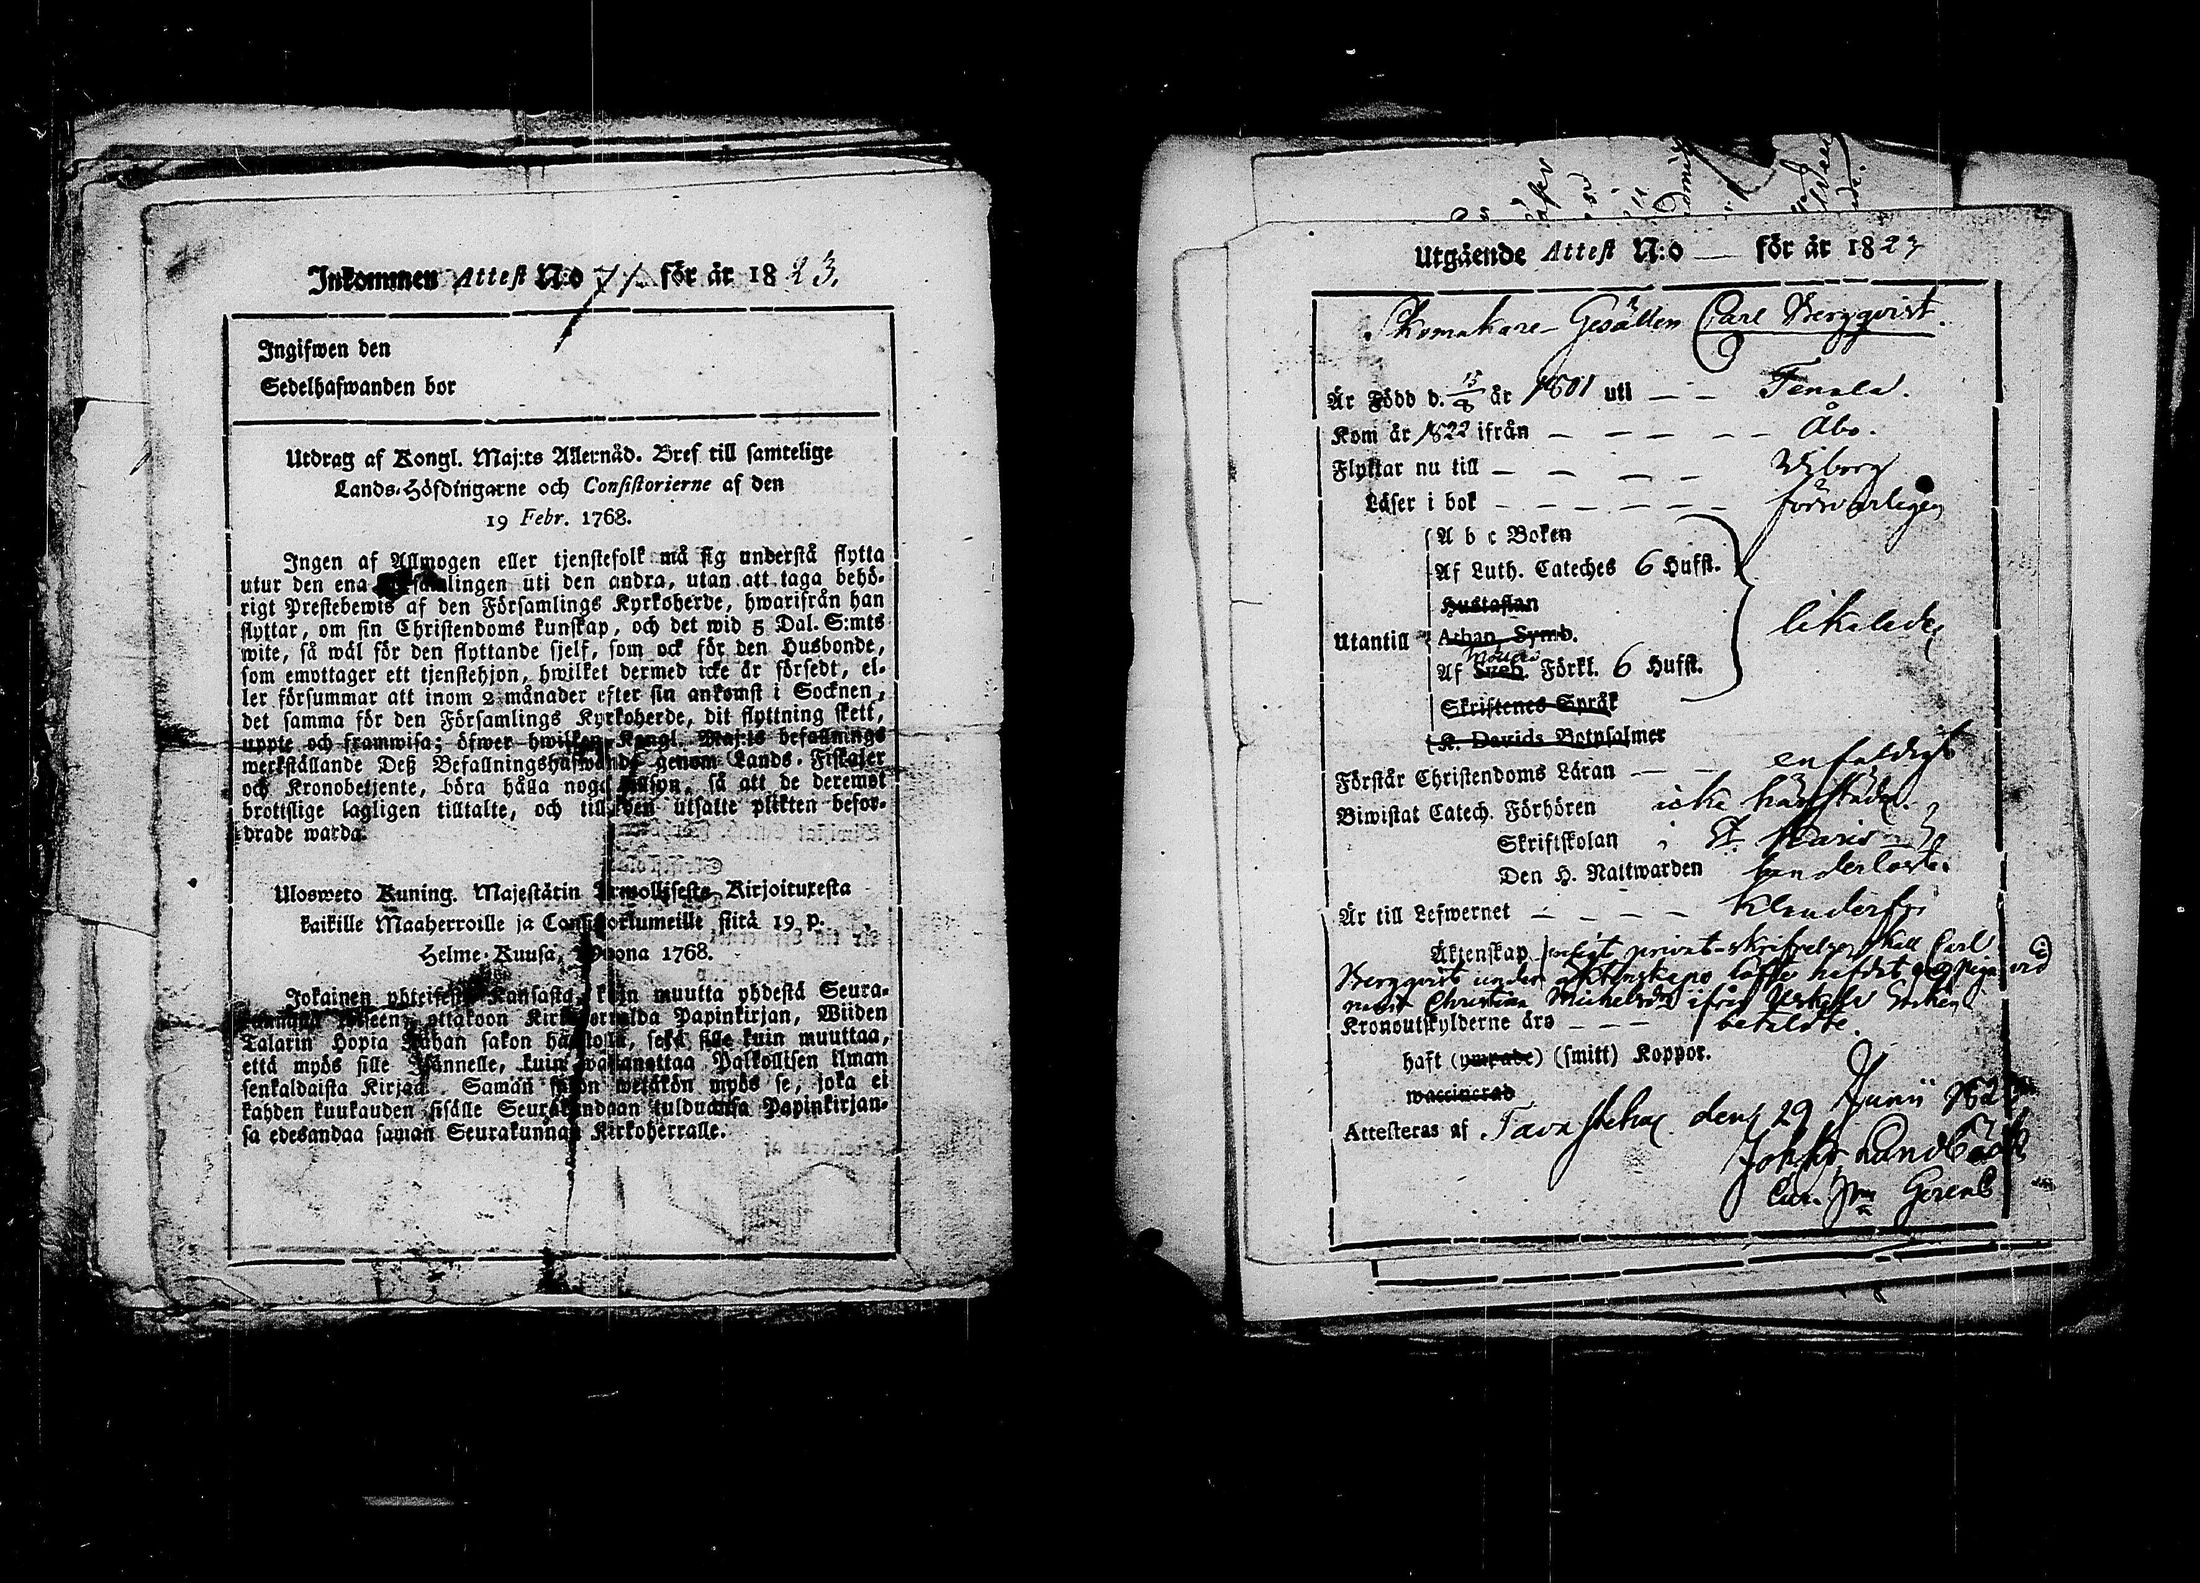 Inkommen Attest N:o 71. för år 1823.
Ingifwen den
Sedelhafwanden bor
Utdrag af Kongl. Maj:ts Allernåd. Bref till samtelige
Lands-Höfdingarne och Consistorierne af den
19 Febr. 1768.
Ingen af Allmogen eller tjenstefolk må sig understå flytta
utur den ena församlingen uti den andra, utan att taga behö-
rigt Prestebewis af den Församlings Kyrkoherde, hwarifrån han
flyttar, om sin Christendoms kunskap, och det wid 5 Dal. S:mts
wite, så wäl för den flyttande sjelf, som ock för den Husbonde,
som emottager ett tjenstehjon, hwilket dermed icke är försedt, el-
ler försummar att inom 2 månader efter sin ankomst i Socknen,
det samma för den Församlings Kyrkoherde, dit flyttning skett,
uppte och framwisa; öfwer hwilken Kongl. Maj:ts befallnings
werkställande Deß Befallningshafwande genom Lands-Fiskaler
och Kronobetjente, böra hålla noga tillsyn, så att de deremot
brottslige lagligen tilltalte, och till den utsatte plikten befor-
drade warda.
Ulosweto Kuning. Majestätin Armollisesta Kirjoituxesta
kaikille Maaherroille ja Consistoriumeille siitä 19 p.
Helme-Kuusa, Wuona 1768.
Jokainen yhteisestä Kansasta, kuin muutta yhdestä Seura-
kunnasta toiseen, ottakoon Kirkkoherralda Papinkirjan, Wiiden
Talarin Hopia Rahan sakon haastolla, sekä sille kuin muuttaa,
että myös sille Isännelle, kuin wastanottaa Palkollisen ilman
senkaldaista Kirjaa. Saman sakon wetäkön myös se, joka ei
kahden kuukauden sisälle Seurakundaan tulduansa Papinkirjan-
sa edesandaa saman Seurakunnan Kirkoherralle.
Utgående Attest N:o — för år 1823
Skomakare-Gesällen Carl Bergqvist.
Är Född d. 15/8 år 1801 uti — — Tenala.
Kom år 1822 ifrån — — — — — Åbo.
Flyttar nu till — — — — Wiborg
Läser i bok — — — — — — försvarligen
A b c Boken
Af Luth. Cateches 6 Hufst.
Hustaflan
Utantill Athan. Symb. likaledes
Af Sveb. Förkl. 6 Hufst.
Skriftenes Språk
K. Davids Botpsalmer
Förstår Christendoms Läran — — enfaldigt
Biwistat Catech. Förhören icke härstädes.
Skriftskolan
Den H. Nattwarden
Är till Lefwernet — — — —
Äktenskap enligt privat-skrifvelse skall Carl
Bergqvist under Äktenskaps löfte häfdat pigan vid
namn Christina Michelsdr ifrån Socken
Kronoutskylderne äro — — — betaldte.
haft (ympade) (smitt) Koppor.
waccinerad
Attesteras af Tavastehus den 29 Junii 1823